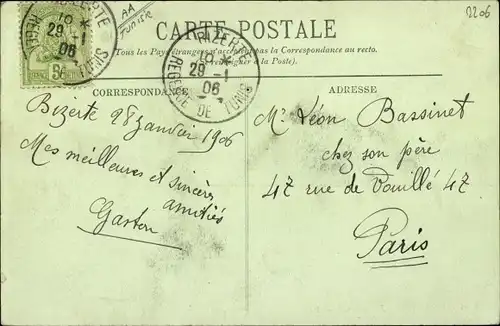 2206
AA
TUNISIE
CARTE POSTALE
Tous les Pays étrangers n'acceptent pas la Correspondance au recto.
(à la Poste).
BIZERTE
29 -1
06
REGENCE DE TUNIS
29 -1
06
TUNIS
CORRESPONDANCE
ADRESSE
Bizerte 28 Janvier 1906
Mes meilleures et sincères
amitiés
Gaston
Mr Léon Bassinet
chez son père
47 rue de Vouillé 47
Paris